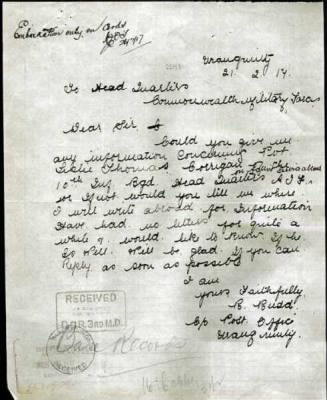 Embarkation only, on Cards
Uranquinty
21. 2. 17.
To Head Quarters
Commonwealth Military Forces
Dear Sir
Could you give me
any information Concerning Pvt
Leslie Thomas Corrigan
10th Inf. Bgd. Head Quarters A.I.F.
or if not would you tell me where
I will write abroad for Information
Have had no letters for quite a
while & would like to know if he
is Well. Will be glad if you can
Reply as soon as possible
I am
Yours Faithfully
B. Budd.
C/o Post Office
Uranquinty.
RECEIVED
3RD M.D.
Base Records
RECEIVED